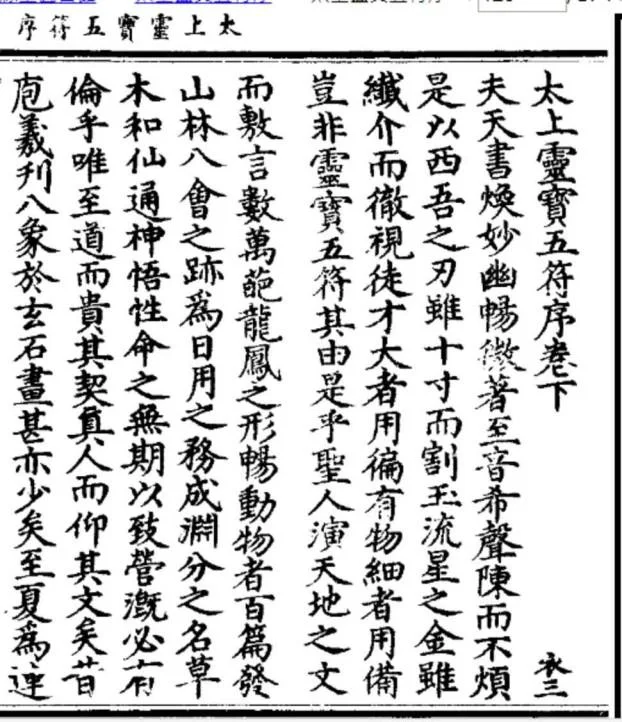 太上靈寳五符序
太上靈寳五符序卷下
衣三
夫天書煥妙幽暢微著至音希聲陳而不煩
是以西吾之刃雖十寸而割玉流星之金雖
纖介而徹視徒才大者用徧有物細者用備
豈非靈寳五符其由是乎聖人演天地之文
而敷言數萬葩龍鳳之形暢動物者百篇發
山林八會之跡爲日用之務成淵分之名草
木和仙通神悟性命之無期以致營漑必有
倫乎唯至道而貴其契真人而仰其文矣昔
庖羲刋八象於玄石畫甚亦少矣至夏爲連